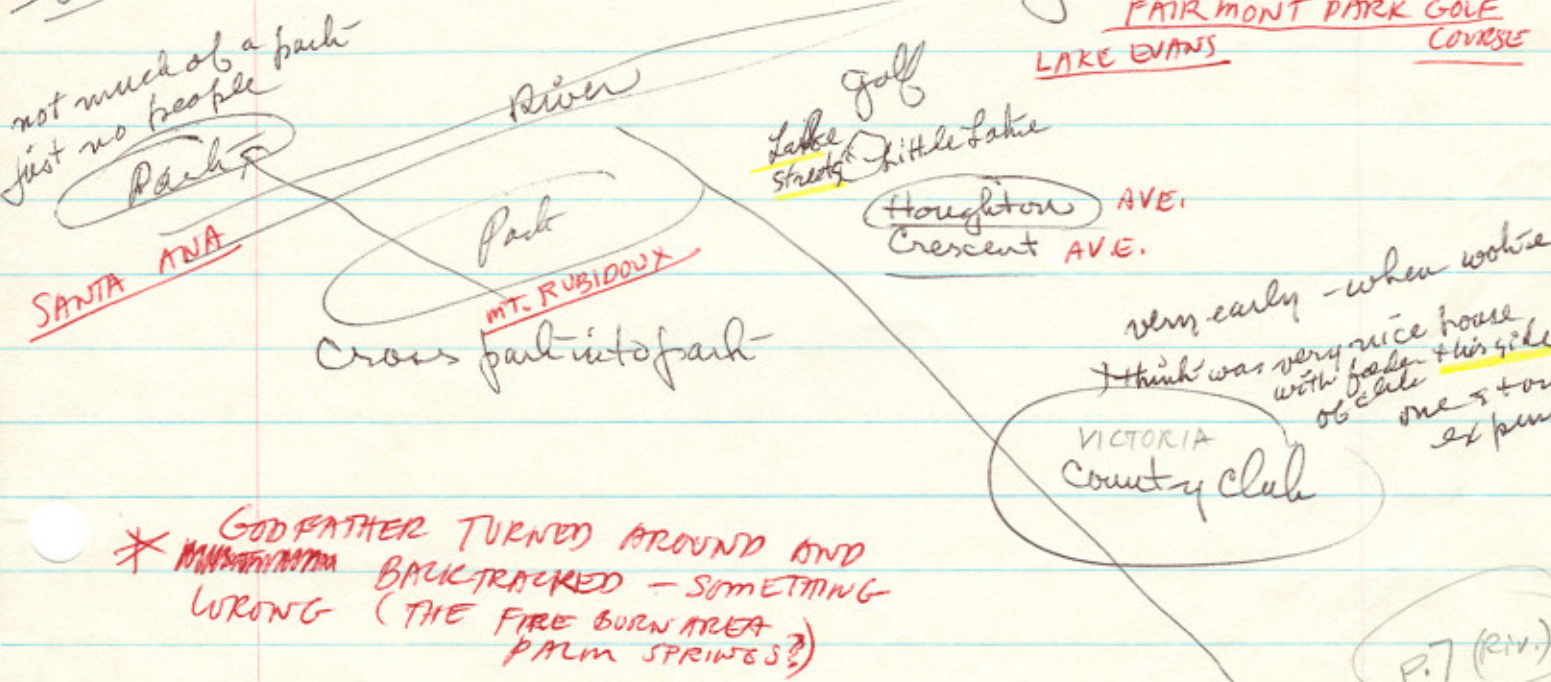 FAIRMONT PARK GOLF
COURSE
LAKE EVANS
not much of a park
just no people
Park
River
golf
Lake
streets
Little Lake
Houghton AVE.
Crescent AVE.
Park
SANTA ANA
MT. RUBIDOUX
Cross park into park
very early - when woke
I think was very nice house
with father this side
of club
one stor
expen
VICTORIA
Country Club
* GODFATHER TURNED AROUND AND
BACKTRACKED - SOMETHING
WRONG (THE FIRE BURN AREA
PALM SPRINGS?)
P.7 (RIV.)